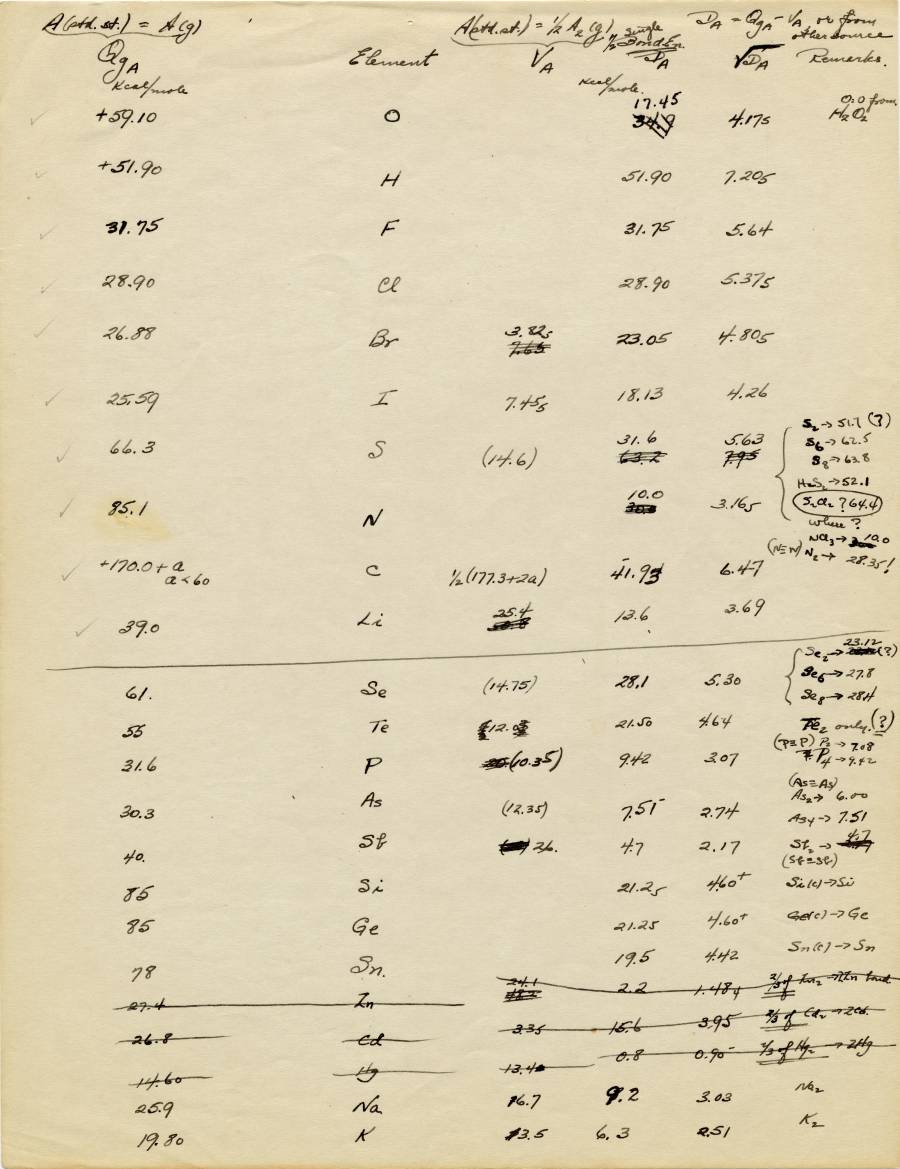 A(std. st.) = A(g) A(std. st.) = 1/2 A2(g) 1/2 Single Bond En. DA = QgA - VA, or from other source
QgA Element VA DA √DA Remarks.
Kcal/mole Kcal/mole.
+59.10 O 17.45 34.9 4.175 O:O from H2O2
+51.90 H 51.90 7.205
31.75 F 31.75 5.64
28.90 Cl 28.90 5.375
26.88 Br 3.825 7.65 23.05 4.805
25.59 I 7.455 18.13 4.26
66.3 S (14.6) 31.6 63.2 5.63 7.95
S2 → 51.7 (?)
S6 → 62.5
S8 → 63.8
H2S2 → 52.1
S2Cl2 ? 64.4
where?
85.1 N 10.0 3.165 NCl3 → 10.0
(N≡N) N2 → 28.35!
+170.0 + a C 1/2(177.3+2a) 41.93 6.47
a < 60
39.0 Li 25.4 13.6 3.69
61. Se (14.75) 28.1 5.30
Se2 → 23.12 (?)
Se6 → 27.8
Se8 → 28.4
55 Te 12.05 21.50 4.64 Te2 only. (?)
31.6 P (10.35) 9.42 3.07 (P≡P) P2 → 7.08
P4 → 9.42
30.3 As (12.35) 7.51 2.74 (As≡As)
As2 → 6.00
As4 → 7.51
40. Sb 26. 4.7 2.17 Sb2 → 4.7
(Sb≡Sb)
85 Si 21.25 4.60+ Si(c) → Si
85 Ge 21.25 4.60+ Ge(c) → Ge
78 Sn. 19.5 4.42 Sn(c) → Sn
27.4 Zn 24.1 2.2 1.484 2/3 of Zn2 → 2Zn
26.8 Cd 3.35 15.6 3.95 2/3 of Cd2 → 2Cd.
14.60 Hg 13.40 0.8 0.90 2/3 of Hg2 → 2Hg
25.9 Na 16.7 9.2 3.03 Na2
19.80 K 13.5 6.3 2.51 K2